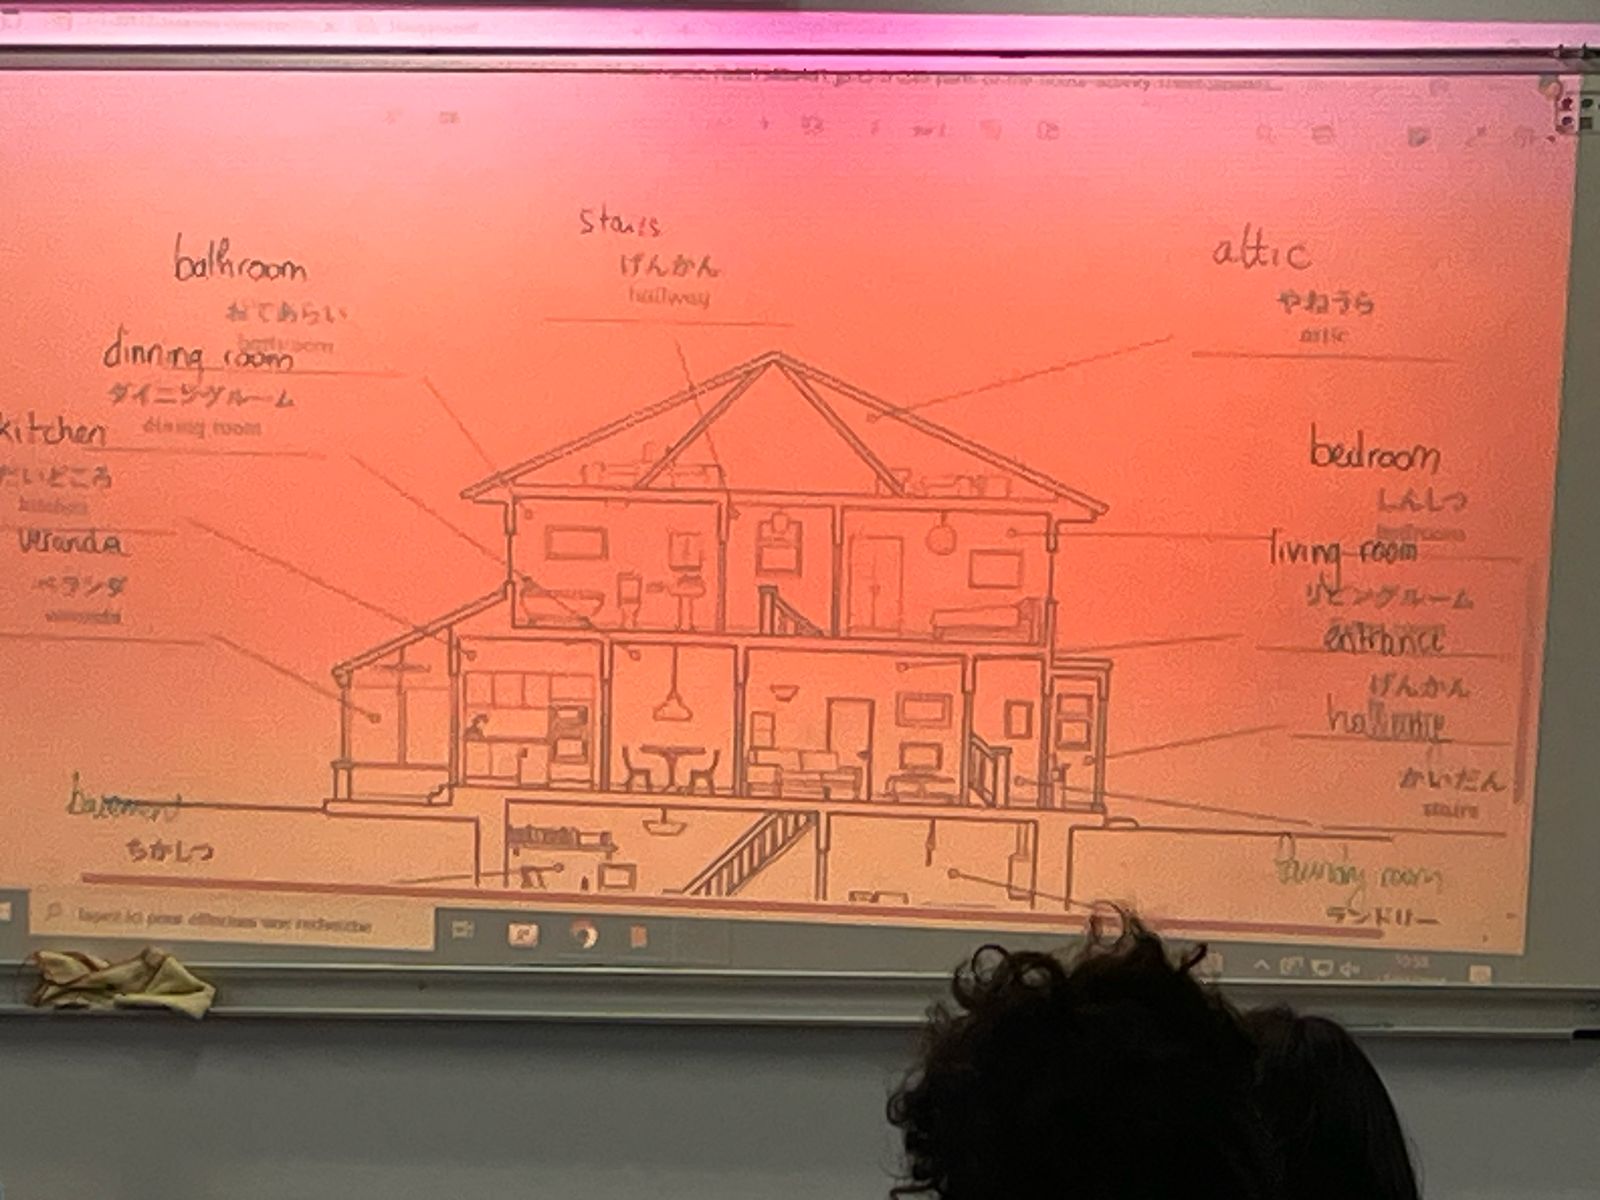 bathroom
おてあらい
bathroom
dinning room
ダイニングルーム
dining room
kitchen
だいどころ
kitchen
veranda
ベランダ
veranda
stairs
げんかん
hallway
attic
やねうら
attic
bedroom
しんしつ
bedroom
living room
リビングルーム
entrance
げんかん
かいだん
stairs
basement
ちかしつ
laundry room
ランドリー
Tapez ici pour effectuer une recherche